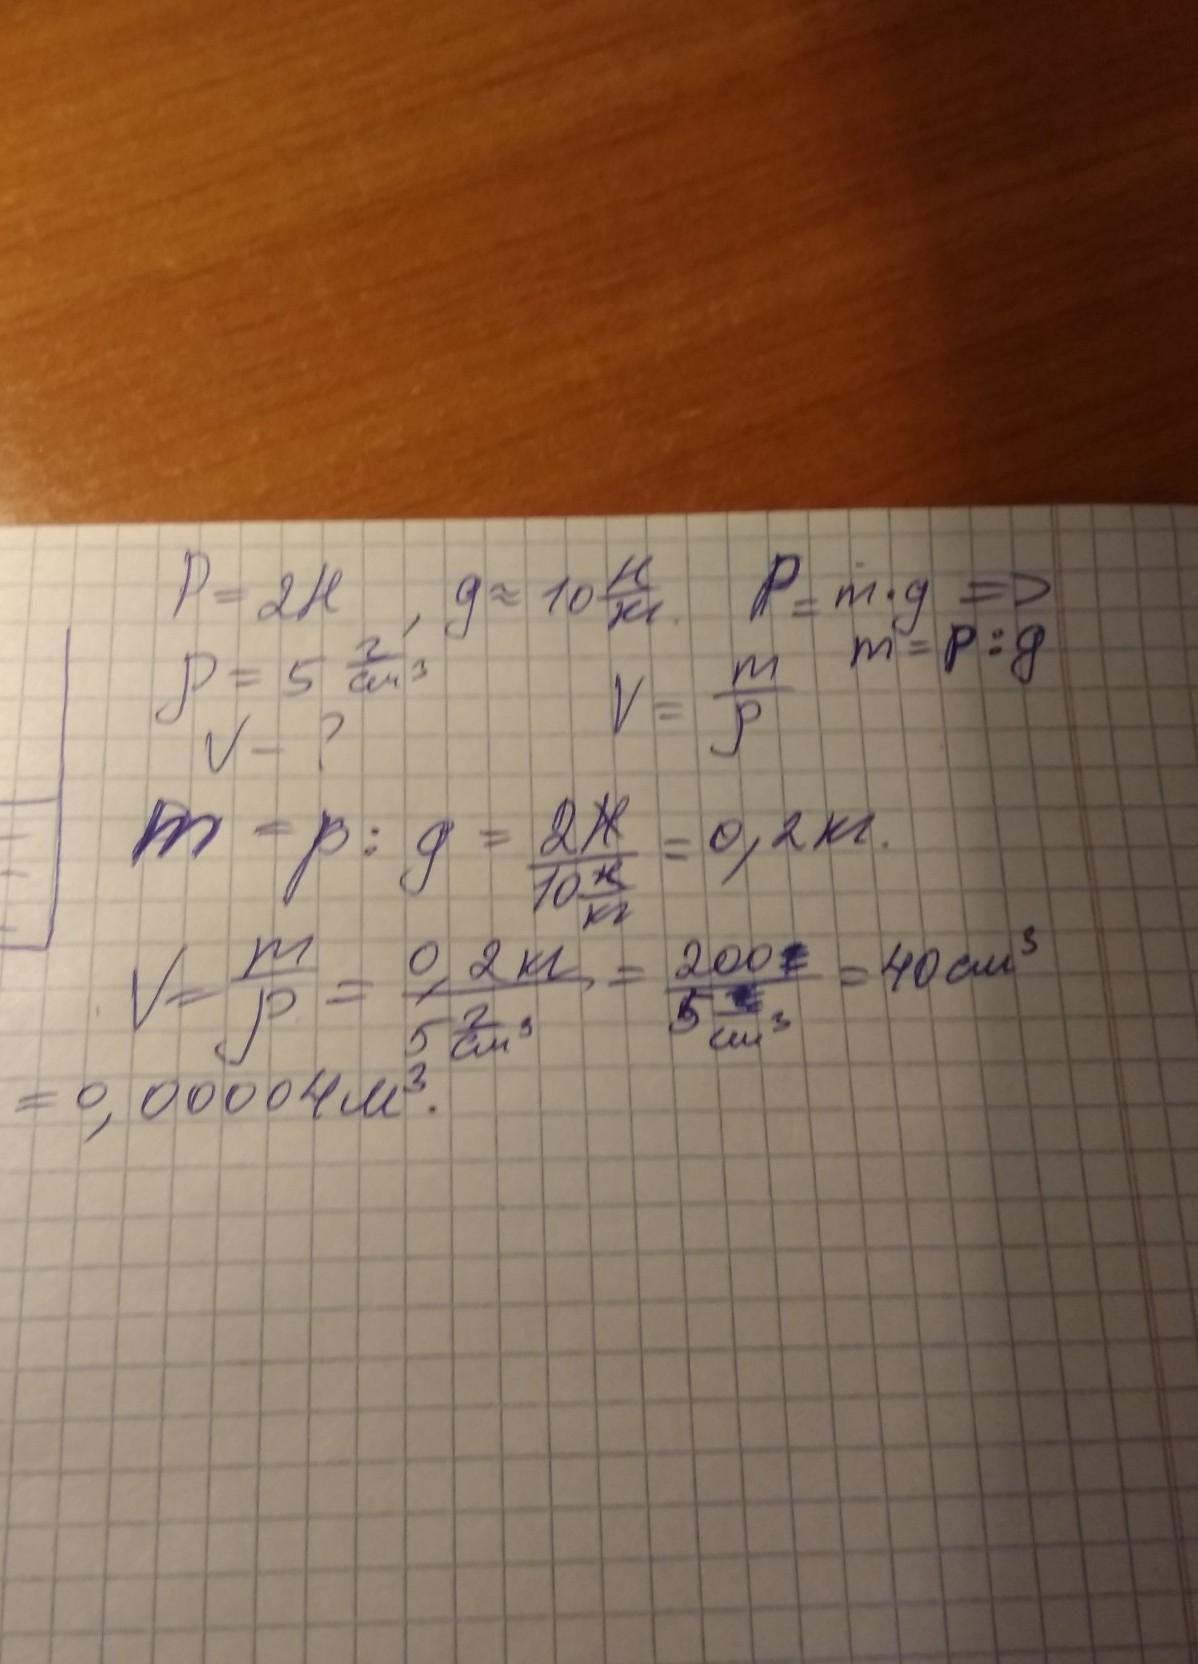 P = 2Н, g ≈ 10 Н/кг. P = m·g =>
ρ = 5 г/см³ V = m/ρ m = p : g
V - ?
m = p : g = 2Н/10 Н/кг = 0,2 кг.
V = m/ρ = 0,2 кг/5 г/см³ = 200г/5 г/см³ = 40 см³
= 0,00004 м³.